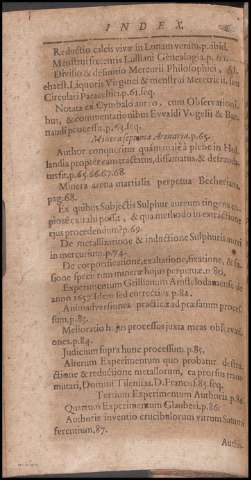 INDEX.
Reductio calcis vivæ in Lunam veram. p. ibid.
Menstrui fœtentis Lulliani Genealogia. p.
Divisio & definitio Mercurii Philosophici,
Liquoris Virgunei & menstrui Mercurii, sed
Circulati Paracelsici. p. 61. seq.
Notata ex Cymbalo aureo, cum Observationi-
bus, & commentationibus Evvaldi Vogelii & Ber-
nardi processu. p. 63. seq.
Minera septima Arenaria. p. 65.
Author conqueritur quam malè à plebe in Hol-
landia propter eam tractatus, diffamatus & defrauda-
tus sit. p. 65. 66. 67. 68
Minera arena martialis perpetua Becheriana,
pag. 68.
Ex quibus Subjectis Sulphur aureum tingens co-
piosè extrahi possit, & qua methodo in extractione
ejus procedendum? p. 69.
De metallizatione & inductione Sulphuris auri
in mercurium. p. 74.
De corporificatione, exaltatione, fixatione, &
sione specierum mineræ hujus perpetuæ. p. 80.
Experimentum Grillianum Amstelodamense de
anno 1657. Idem sed correctius. p. 82.
Animadversiones practicæ ad præfatum proces-
sum. p. 83.
Melioratio hujus processus juxta meas observati-
ones. p. 84.
Judicium supra hunc processum. p. 85.
Alterum Experimentum quo probatur destru-
ctione & reductione metallorum, ea prorsus trans-
mutari, Domini D. Franc. p. 85. seq.
Tertium Experimentum Authoris. p. 86.
Quartum Experimentum Glauberi. p. 86.
Authoris inventio crucibulorum vitrum Saturni
ferentium, 87.
Autho-